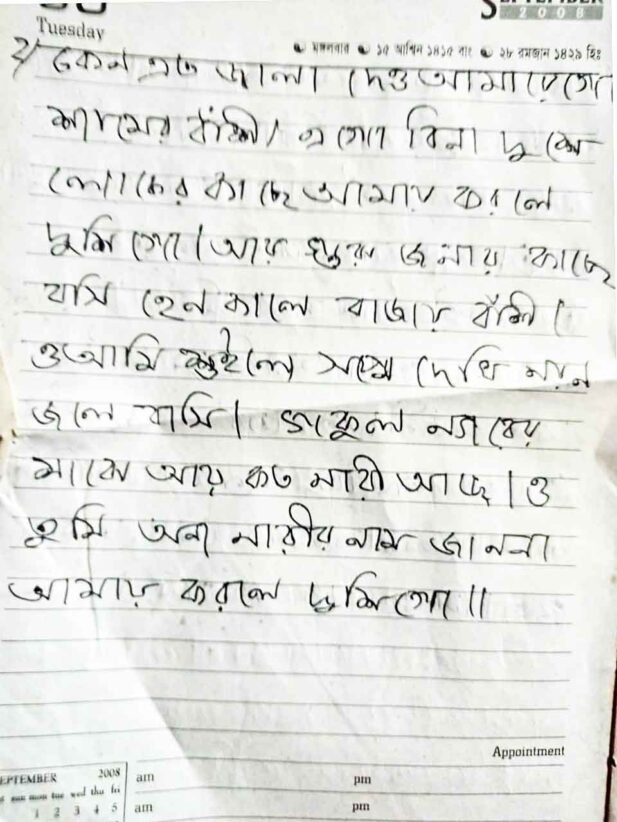 SEPTEMBER
2008
Tuesday
মঙ্গলবার ১৫ আশ্বিন ১৪১৫ বাং ২৮ রমজান ১৪২৯ হিঃ
২/ কেন এত জালা দেও আমারে গো
শ্যামের বাঁশী। এ গো বিনা দুষে
লোকের কাছে আমায় করলে
দুষি গো। আর গুরু জনার কাছে
বসি হেন কালে বাজায় বাঁশী।
ও আমি শুইলে সপ্নে দেখি নয়ন
জলে বাসি। গকুল নগরের
মাঝে আর কত নারী আছে। ও
তুমি অন্য নারীর নাম জাননা
আমায় করলে দুষি গো॥
Appointment
SEPTEMBER 2008
am pm
sun mon tue wed thu fri
1 2 3 4 5
am pm